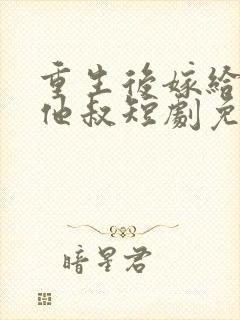 重生後嫁給
他叔短劇免
暗星君